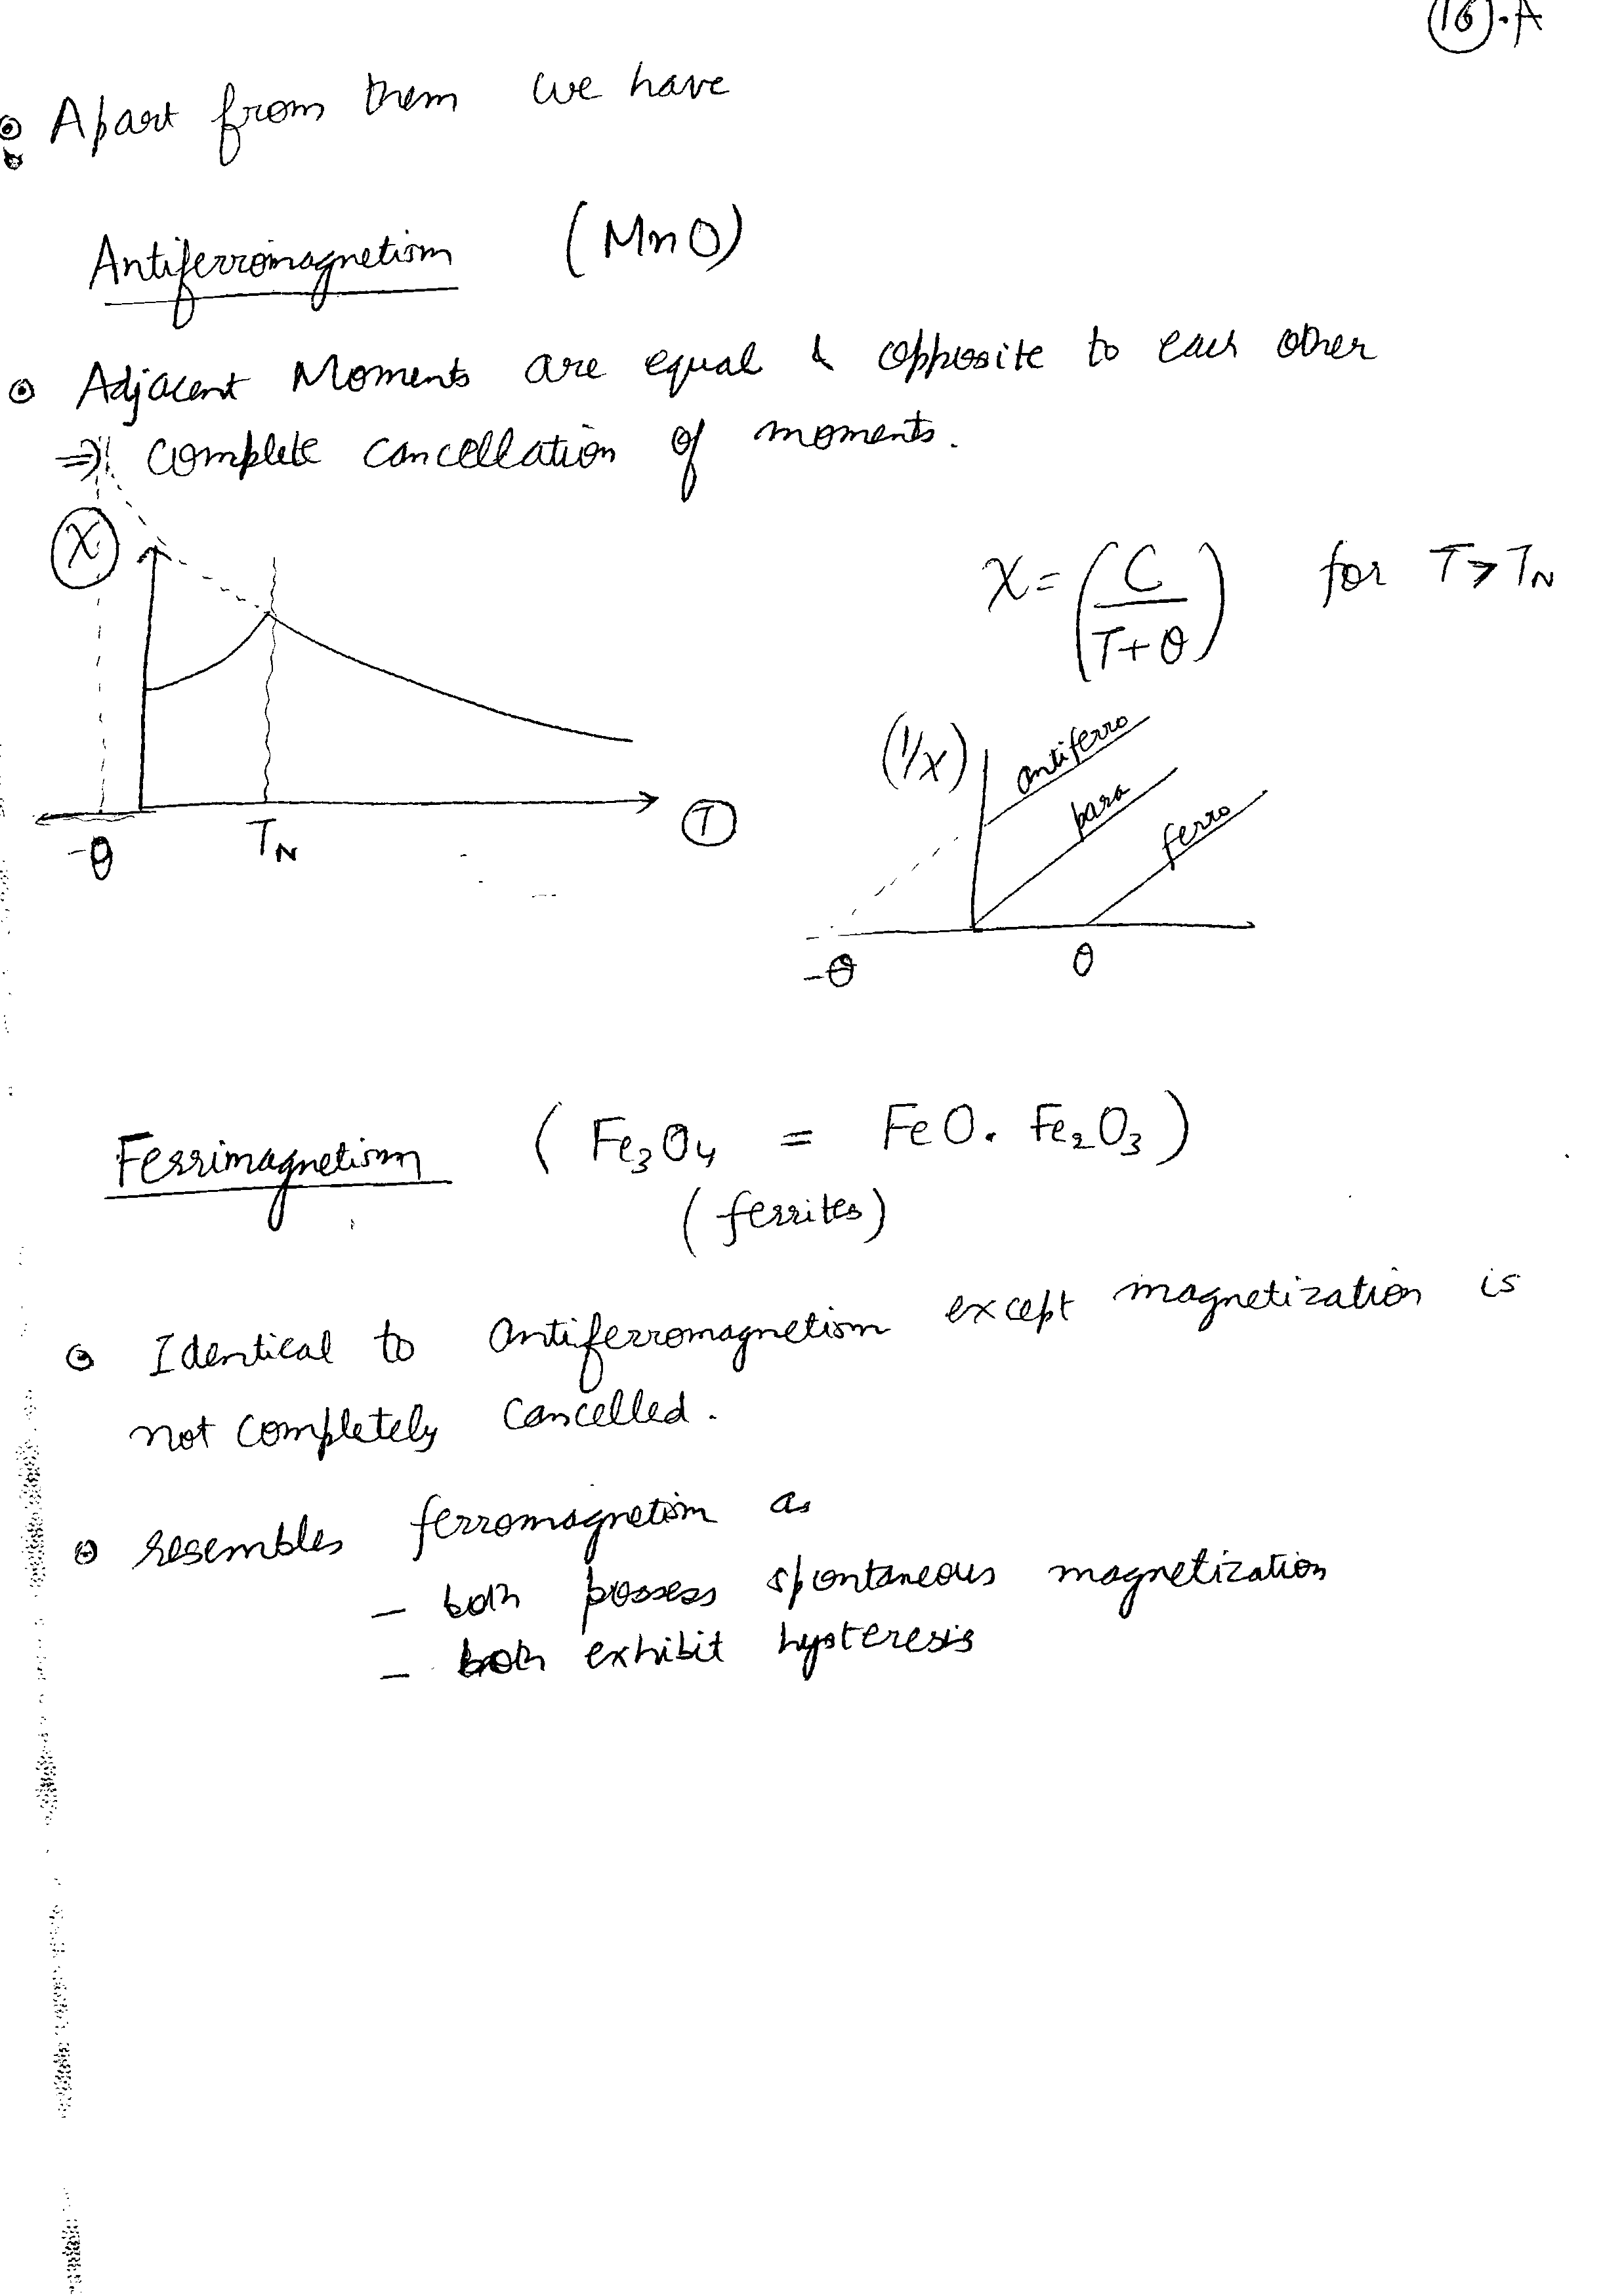 (16).A
Apart from them we have
Antiferromagnetism (MnO)
Adjacent Moments are equal & opposite to each other
⇒ complete cancellation of moments.
χ
-θ TN T
χ = (C/(T+θ)) for T > TN
(1/χ) antiferro para ferro
-θ θ
Ferrimagnetism (Fe₃O₄ = FeO. Fe₂O₃)
(ferrites)
Identical to antiferromagnetism except magnetization is
not completely cancelled.
resembles ferromagnetism as
– both possess spontaneous magnetization
– both exhibit hysteresis